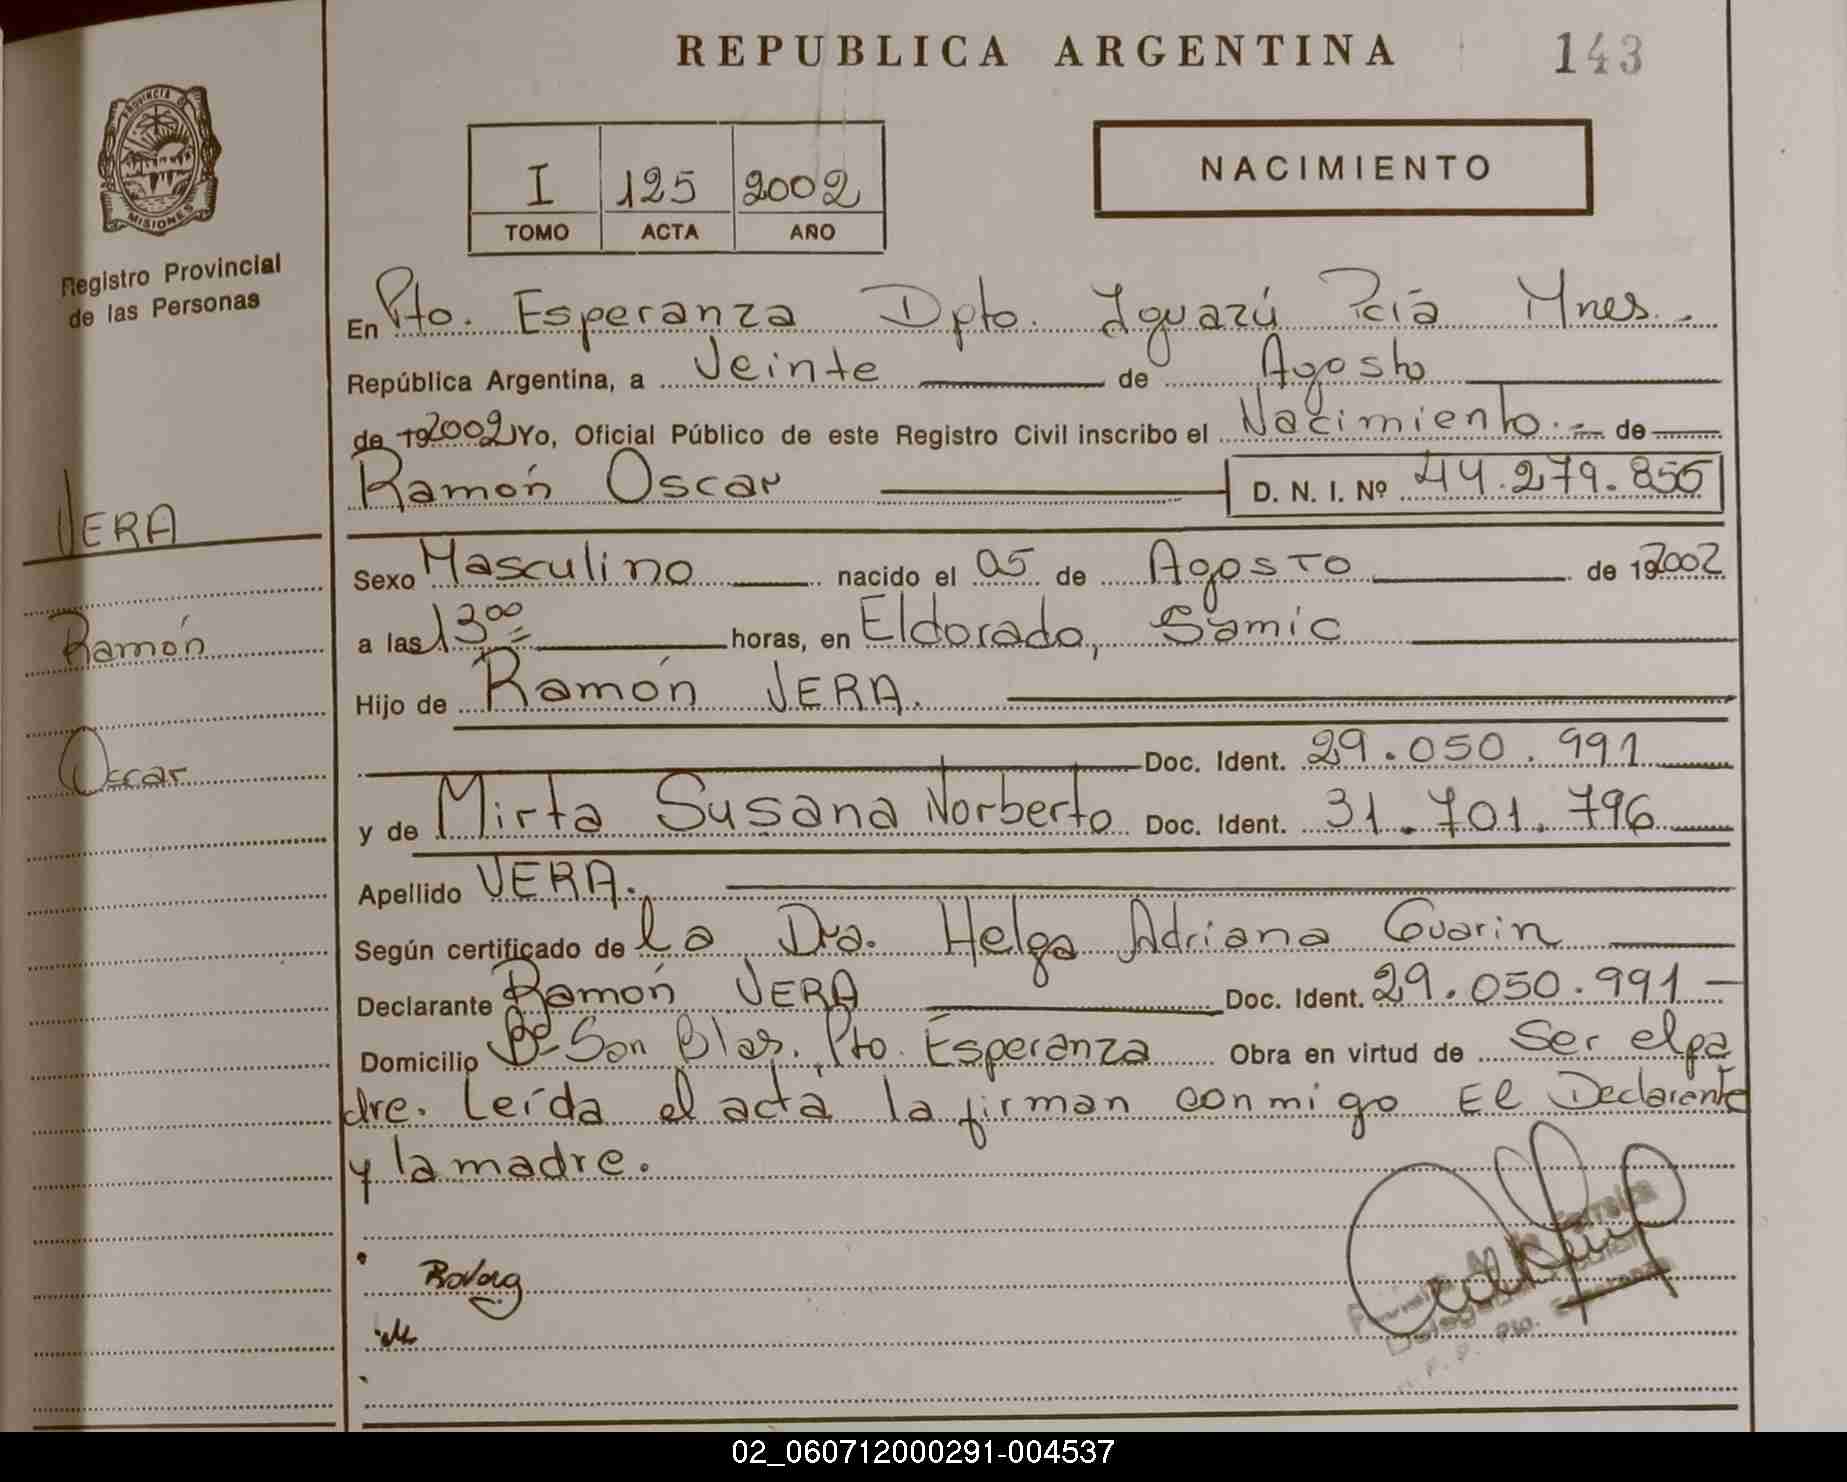 REPUBLICA ARGENTINA
143
PROVINCIA DE
MISIONES
Registro Provincial
de las Personas
I 125 2002
TOMO ACTA AÑO
NACIMIENTO
En Pto. Esperanza Dpto. Iguazú Pcia Mnes.
República Argentina, a Veinte de Agosto
de 19 2002 Yo, Oficial Público de este Registro Civil inscribo el Nacimiento.- de
Ramón Oscar D. N. I. Nº 44.279.855
VERA
Ramón
Oscar
Sexo Masculino nacido el 05 de Agosto de 19 2002
a las 13 00 horas, en Eldorado, Samic
Hijo de Ramón VERA.
Doc. Ident. 29.050.991
y de Mirta Susana Norberto Doc. Ident. 31.701.796
Apellido VERA.
Según certificado de la Dra. Helga Adriana Guarin
Declarante Ramón VERA Doc. Ident. 29.050.991 -
Domicilio Bº San Blas. Pto. Esperanza Obra en virtud de Ser el pa
dre. Leída el acta la firman conmigo El Declarante
y la madre.
02_060712000291-004537